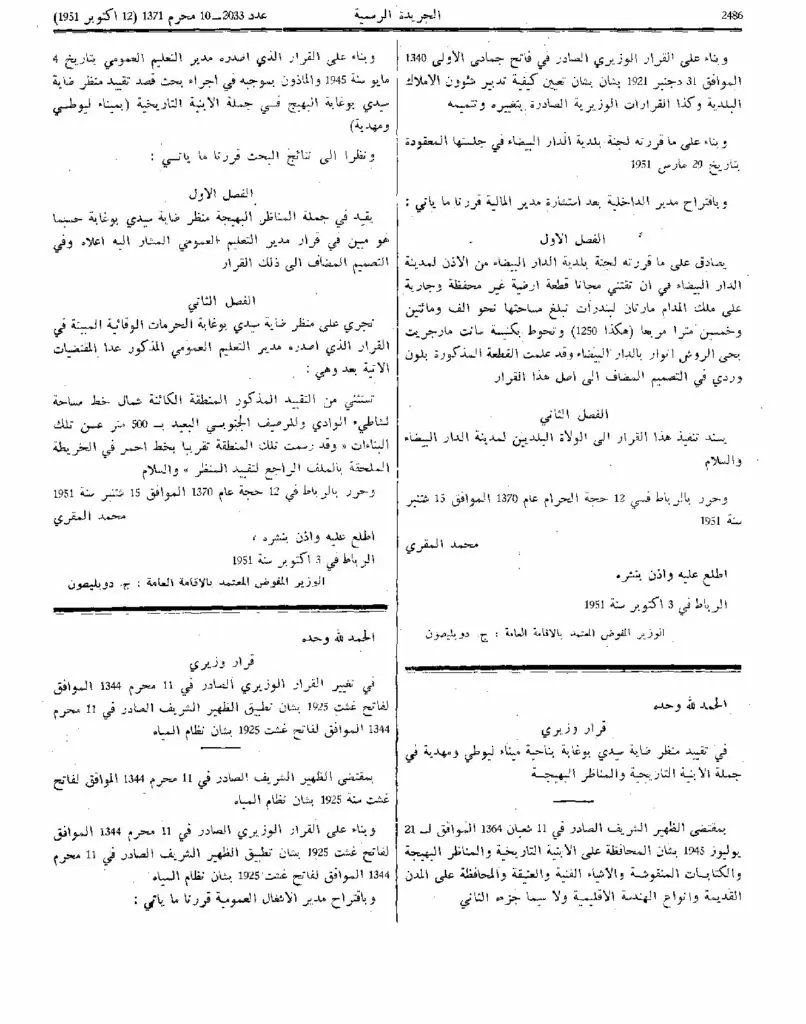 2486
الجريدة الرسمية
عدد 2033 ــ 10 محرم 1371 (12 اكتوبر 1951)
وبناء على القرار الوزيري الصادر في فاتح جمادى الاولى 1340
الموافق 31 دجنبر 1921 بشان بشان تعين كيفية تدبير شؤون الاملاك
البلدية وكذا القرارات الوزيرية الصادرة بتغييره وتتميمه
وبناء على ما قررته لجنة بلدية الدار البيضاء في جلستها المعقودة
بتاريخ 29 مارس 1951
وباقتراح مدير الداخلية بعد استشارة مدير المالية قررنا ما ياتي :
الفصل الاول
يصادق على ما قررته لجنة بلدية الدار البيضاء من الاذن لمدينة
الدار البيضاء في ان تقتني مجانا قطعة ارضية غير محفظة وجارية
على ملك المدام مارتان ليندرات تبلغ مساحتها نحو الف ومائتين
وخمسين مترا مربعا (هكذا 1250) وتحوط بكنيسة سانت مارجريت
بحى الروش انوار بالدار البيضاء وقد علمت القطعة المذكورة بلون
وردي في التصميم المضاف الى اصل هذا القرار
الفصل الثاني
يسند تنفيذ هذا القرار الى الولاة البلديين لمدينة الدار البيضاء
والسلام
وحرر بالرباط في 12 حجة الحرام عام 1370 الموافق 15 شتنبر
سنة 1951
محمد المقري
اطلع عليه واذن بنشره
الرباط في 3 اكتوبر سنة 1951
الوزير المفوض المعتمد بالاقامة العامة : ج. دوبليصون
الحمد لله وحده
قرار وزيري
في تقييد منظر ضاية سيدي بوغابة بناحية ميناء ليوطي ومهدية في
جملة الابنية التاريخية والمناظر البهيجة
بمقتضى الظهير الشريف الصادر في 11 شعبان 1364 الموافق لـ 21
يوليوز 1945 بشان المحافظة على الابنية التاريخية والمناظر البهيجة
والكتابات المنقوشة والاشياء الفنية والعتيقة والمحافظة على المدن
القديمة وانواع الهندسة الاقليمية ولا سيما جزءه الثاني
وبناء على القرار الذي اصدره مدير التعليم العمومي بتاريخ 4
مايو سنة 1945 والماذون بموجبه في اجراء بحث قصد تقييد منظر ضاية
سيدي بوغابة البهيج في جملة الابنية التاريخية (بميناء ليوطي
ومهدية)
ونظرا الى نتائج البحث قررنا ما ياتي :
الفصل الاول
يقيد في جملة المناظر البهيجة منظر ضاية سيدي بوغابة حسبما
هو مبين في قرار مدير التعليم العمومي المشار اليه اعلاه وفي
التصميم المضاف الى ذلك القرار
الفصل الثاني
تجري على منظر ضاية سيدي بوغابة الحرمات الوقائية المبينة في
القرار الذي اصدره مدير التعليم العمومي المذكور عدا المقتضيات
الاتية بعد وهي :
تستثنى من التقييد المذكور المنطقة الكائنة شمال خط مساحة
لشاطيء الوادي وللرصيف الجنوبي البعيد بـ 500 متر عن تلك
البناءات « وقد رسمت تلك المنطقة تقريبا بخط احمر في الخريطة
الملحقة بالملف الراجع لتقييد المنظر » والسلام
وحرر بالرباط في 12 حجة عام 1370 الموافق 15 شتنبر سنة 1951
محمد المقري
اطلع عليه واذن بنشره ،
الرباط في 3 اكتوبر سنة 1951
الوزير المفوض المعتمد بالاقامة العامة : ج. دوبليصون
الحمد لله وحده
قرار وزيري
في تغيير القرار الوزيري الصادر في 11 محرم 1344 الموافق
لفاتح غشت 1925 بشان تطبيق الظهير الشريف الصادر في 11 محرم
1344 الموافق لفاتح غشت 1925 بشان نظام المياه
بمقتضى الظهير الشريف الصادر في 11 محرم 1344 الموافق لفاتح
غشت سنة 1925 بشان نظام المياه
وبناء على القرار الوزيري الصادر في 11 محرم 1344 الموافق
لفاتح غشت 1925 بشان تطبيق الظهير الشريف الصادر في 11 محرم
1344 الموافق لفاتح غشت 1925 بشان نظام المياه
وباقتراح مدير الاشغال العمومية قررنا ما ياتي :